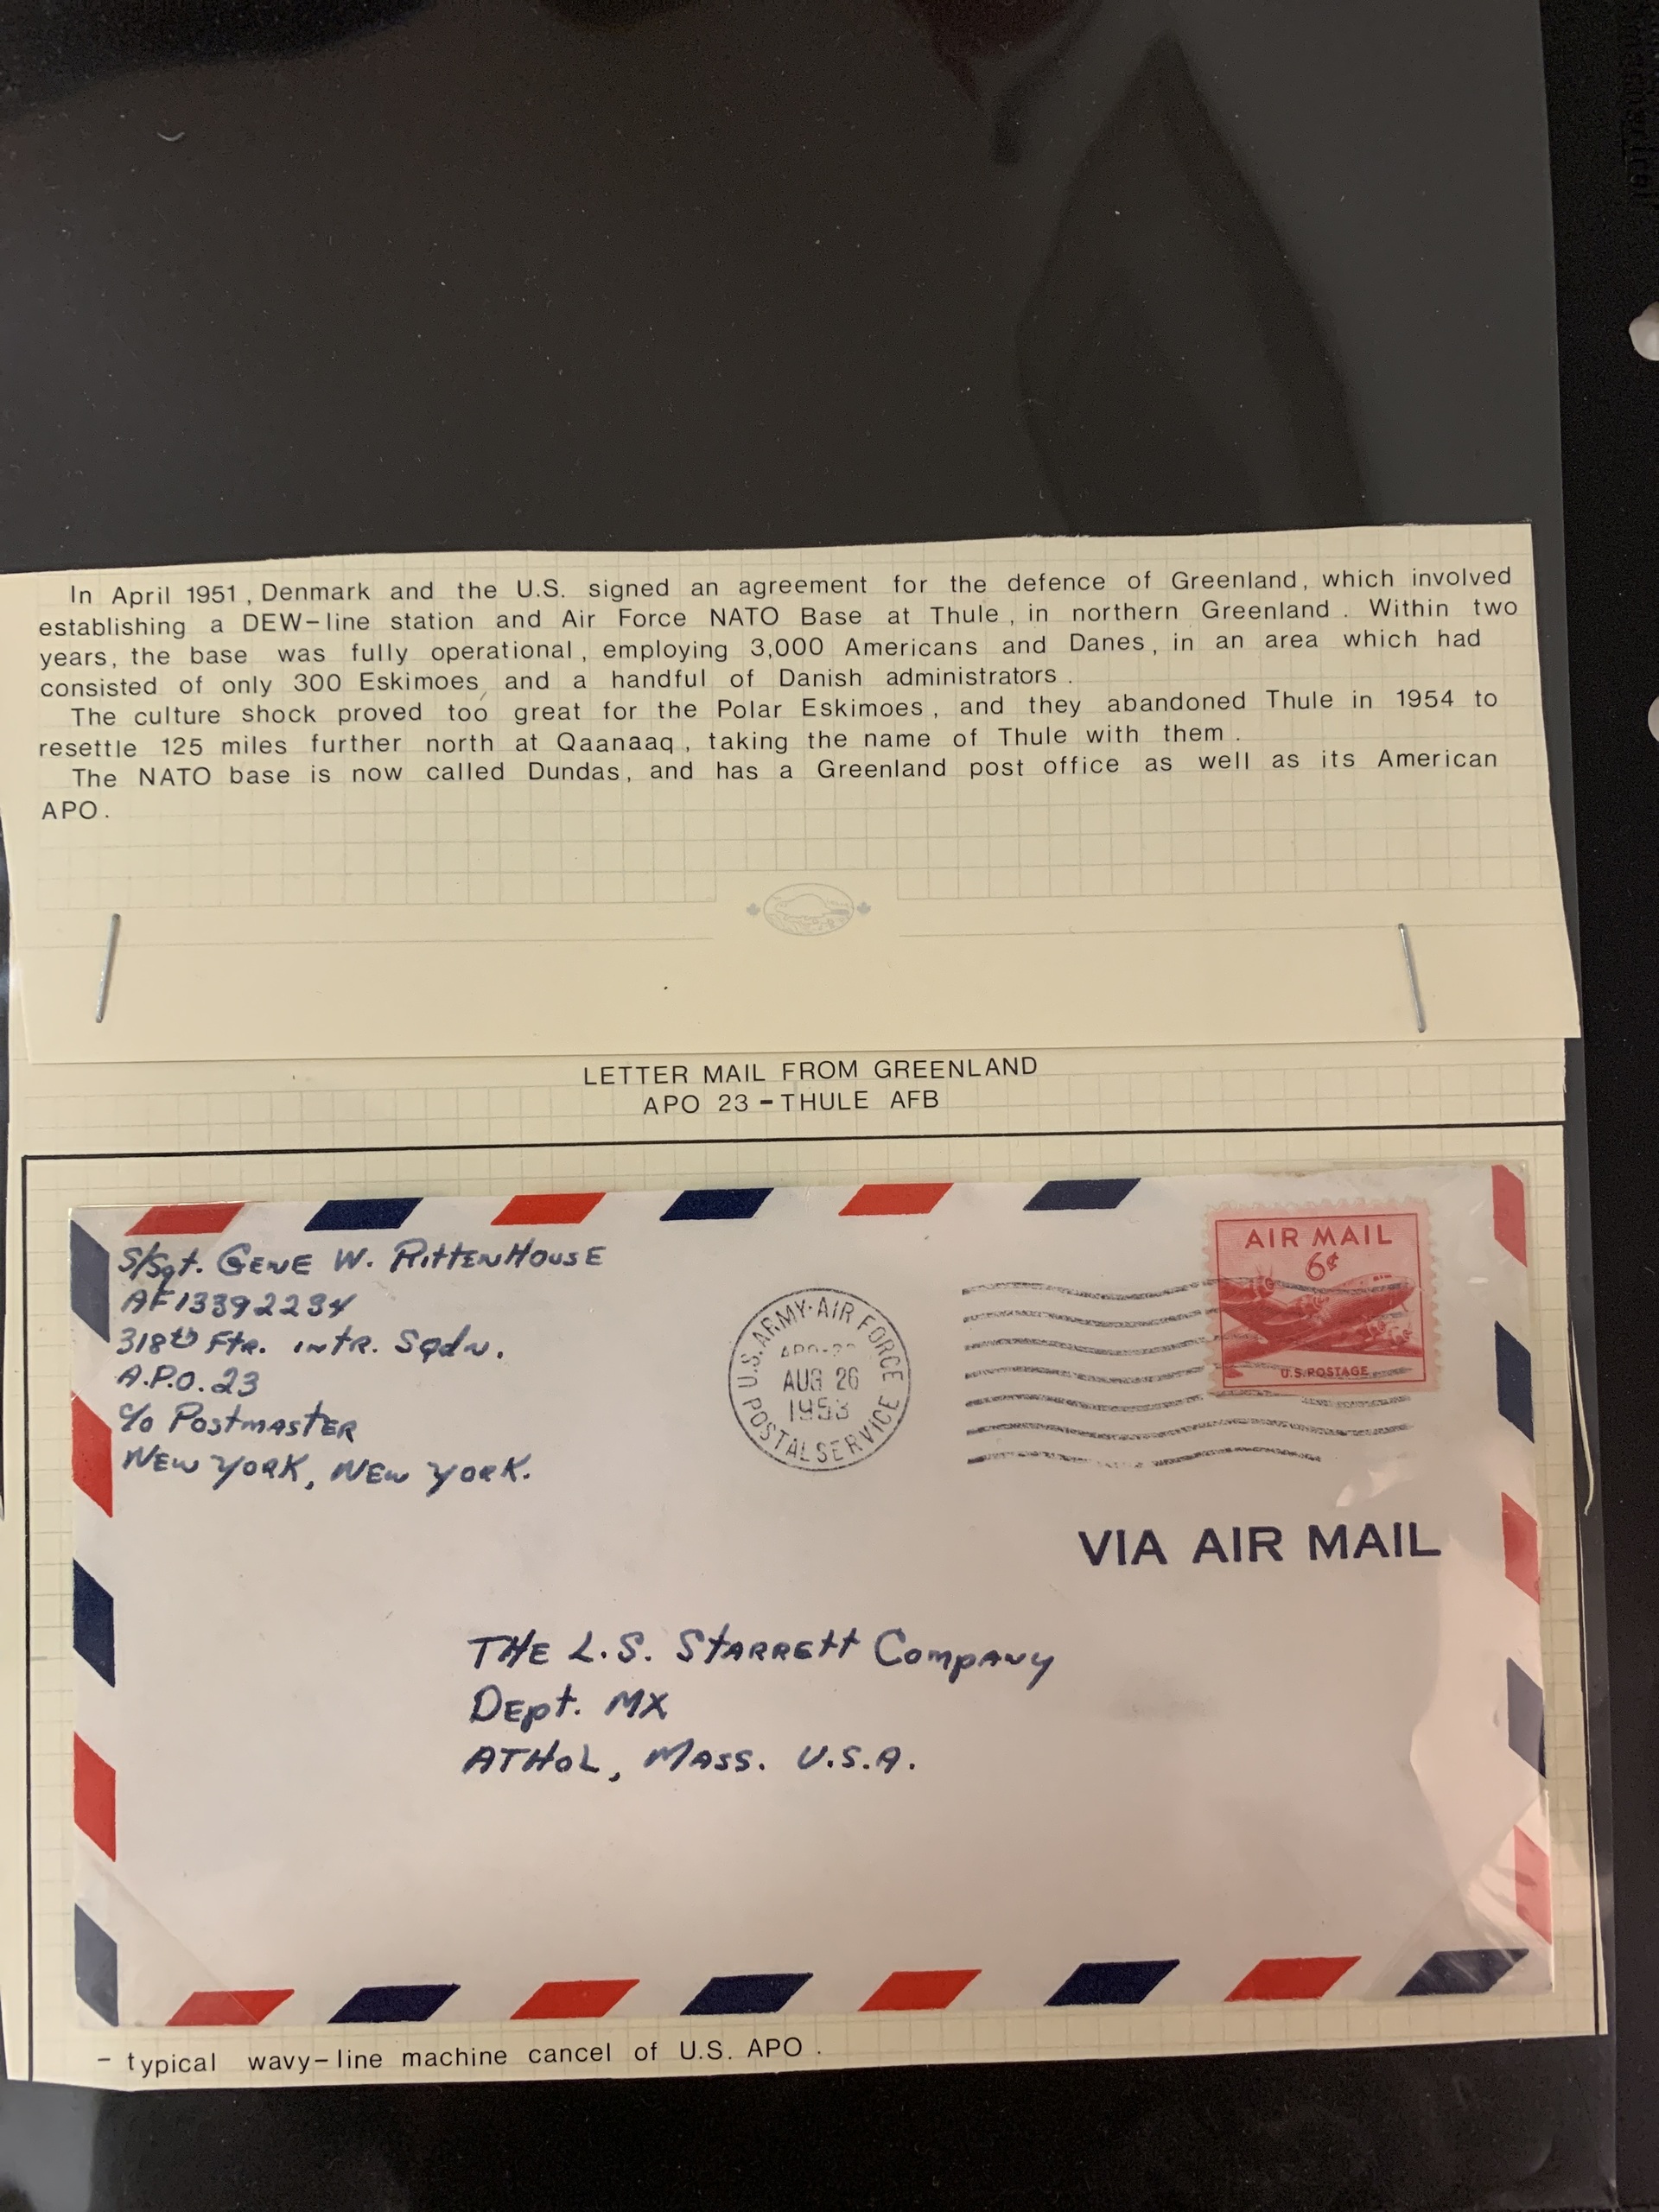 In April 1951, Denmark and the U.S. signed an agreement for the defence of Greenland, which involved
establishing a DEW-line station and Air Force NATO Base at Thule, in northern Greenland. Within two
years, the base was fully operational, employing 3,000 Americans and Danes, in an area which had
consisted of only 300 Eskimoes, and a handful of Danish administrators.
The culture shock proved too great for the Polar Eskimoes, and they abandoned Thule in 1954 to
resettle 125 miles further north at Qaanaaq, taking the name of Thule with them.
The NATO base is now called Dundas, and has a Greenland post office as well as its American
APO.
LETTER MAIL FROM GREENLAND
APO 23 - THULE AFB
S/Sgt. GENE W. RittENHOUSE
AF13392234
318th Ftr. intr. Sqdn.
A.P.O. 23
c/o PostmastER
NEW YORK, NEW YORK.
U.S. ARMY-AIR FORCE
APO-23
AUG 26
1953
POSTAL SERVICE
AIR MAIL
6¢
U.S. POSTAGE
VIA AIR MAIL
THE L.S. StARREtt CompANy
DEpt. MX
ATHOL, MASS. U.S.A.
- typical wavy-line machine cancel of U.S. APO.